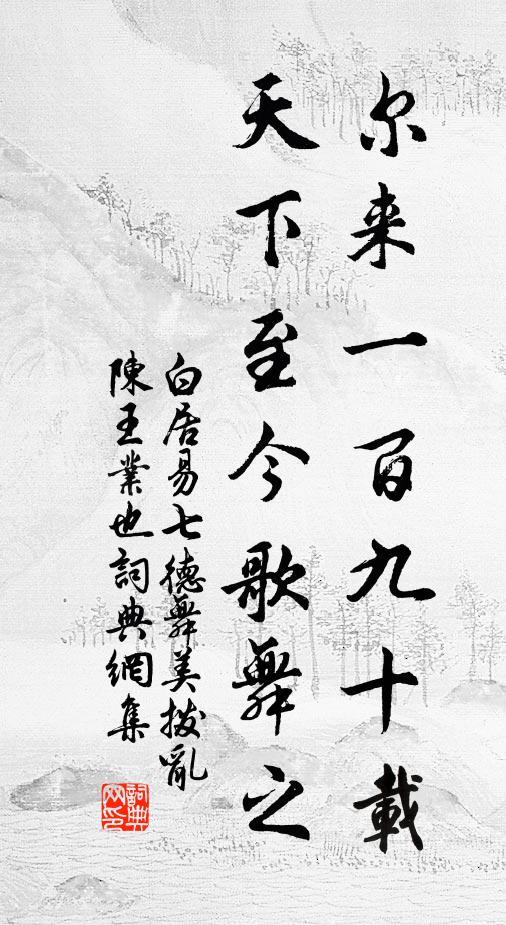 尔来一百九十載
天下至今歌舞之
白居易七德舞美撥亂
陳王業也詞典網集
詞典网印